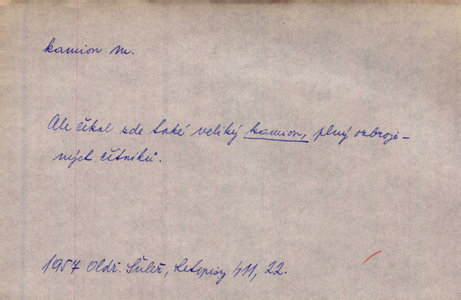 kamion m.
Ale čekal zde také veliký kamion, plný ozbroje-
ných četníků.
1957 Oldř. Šuleř, Letopisy 411, 22.